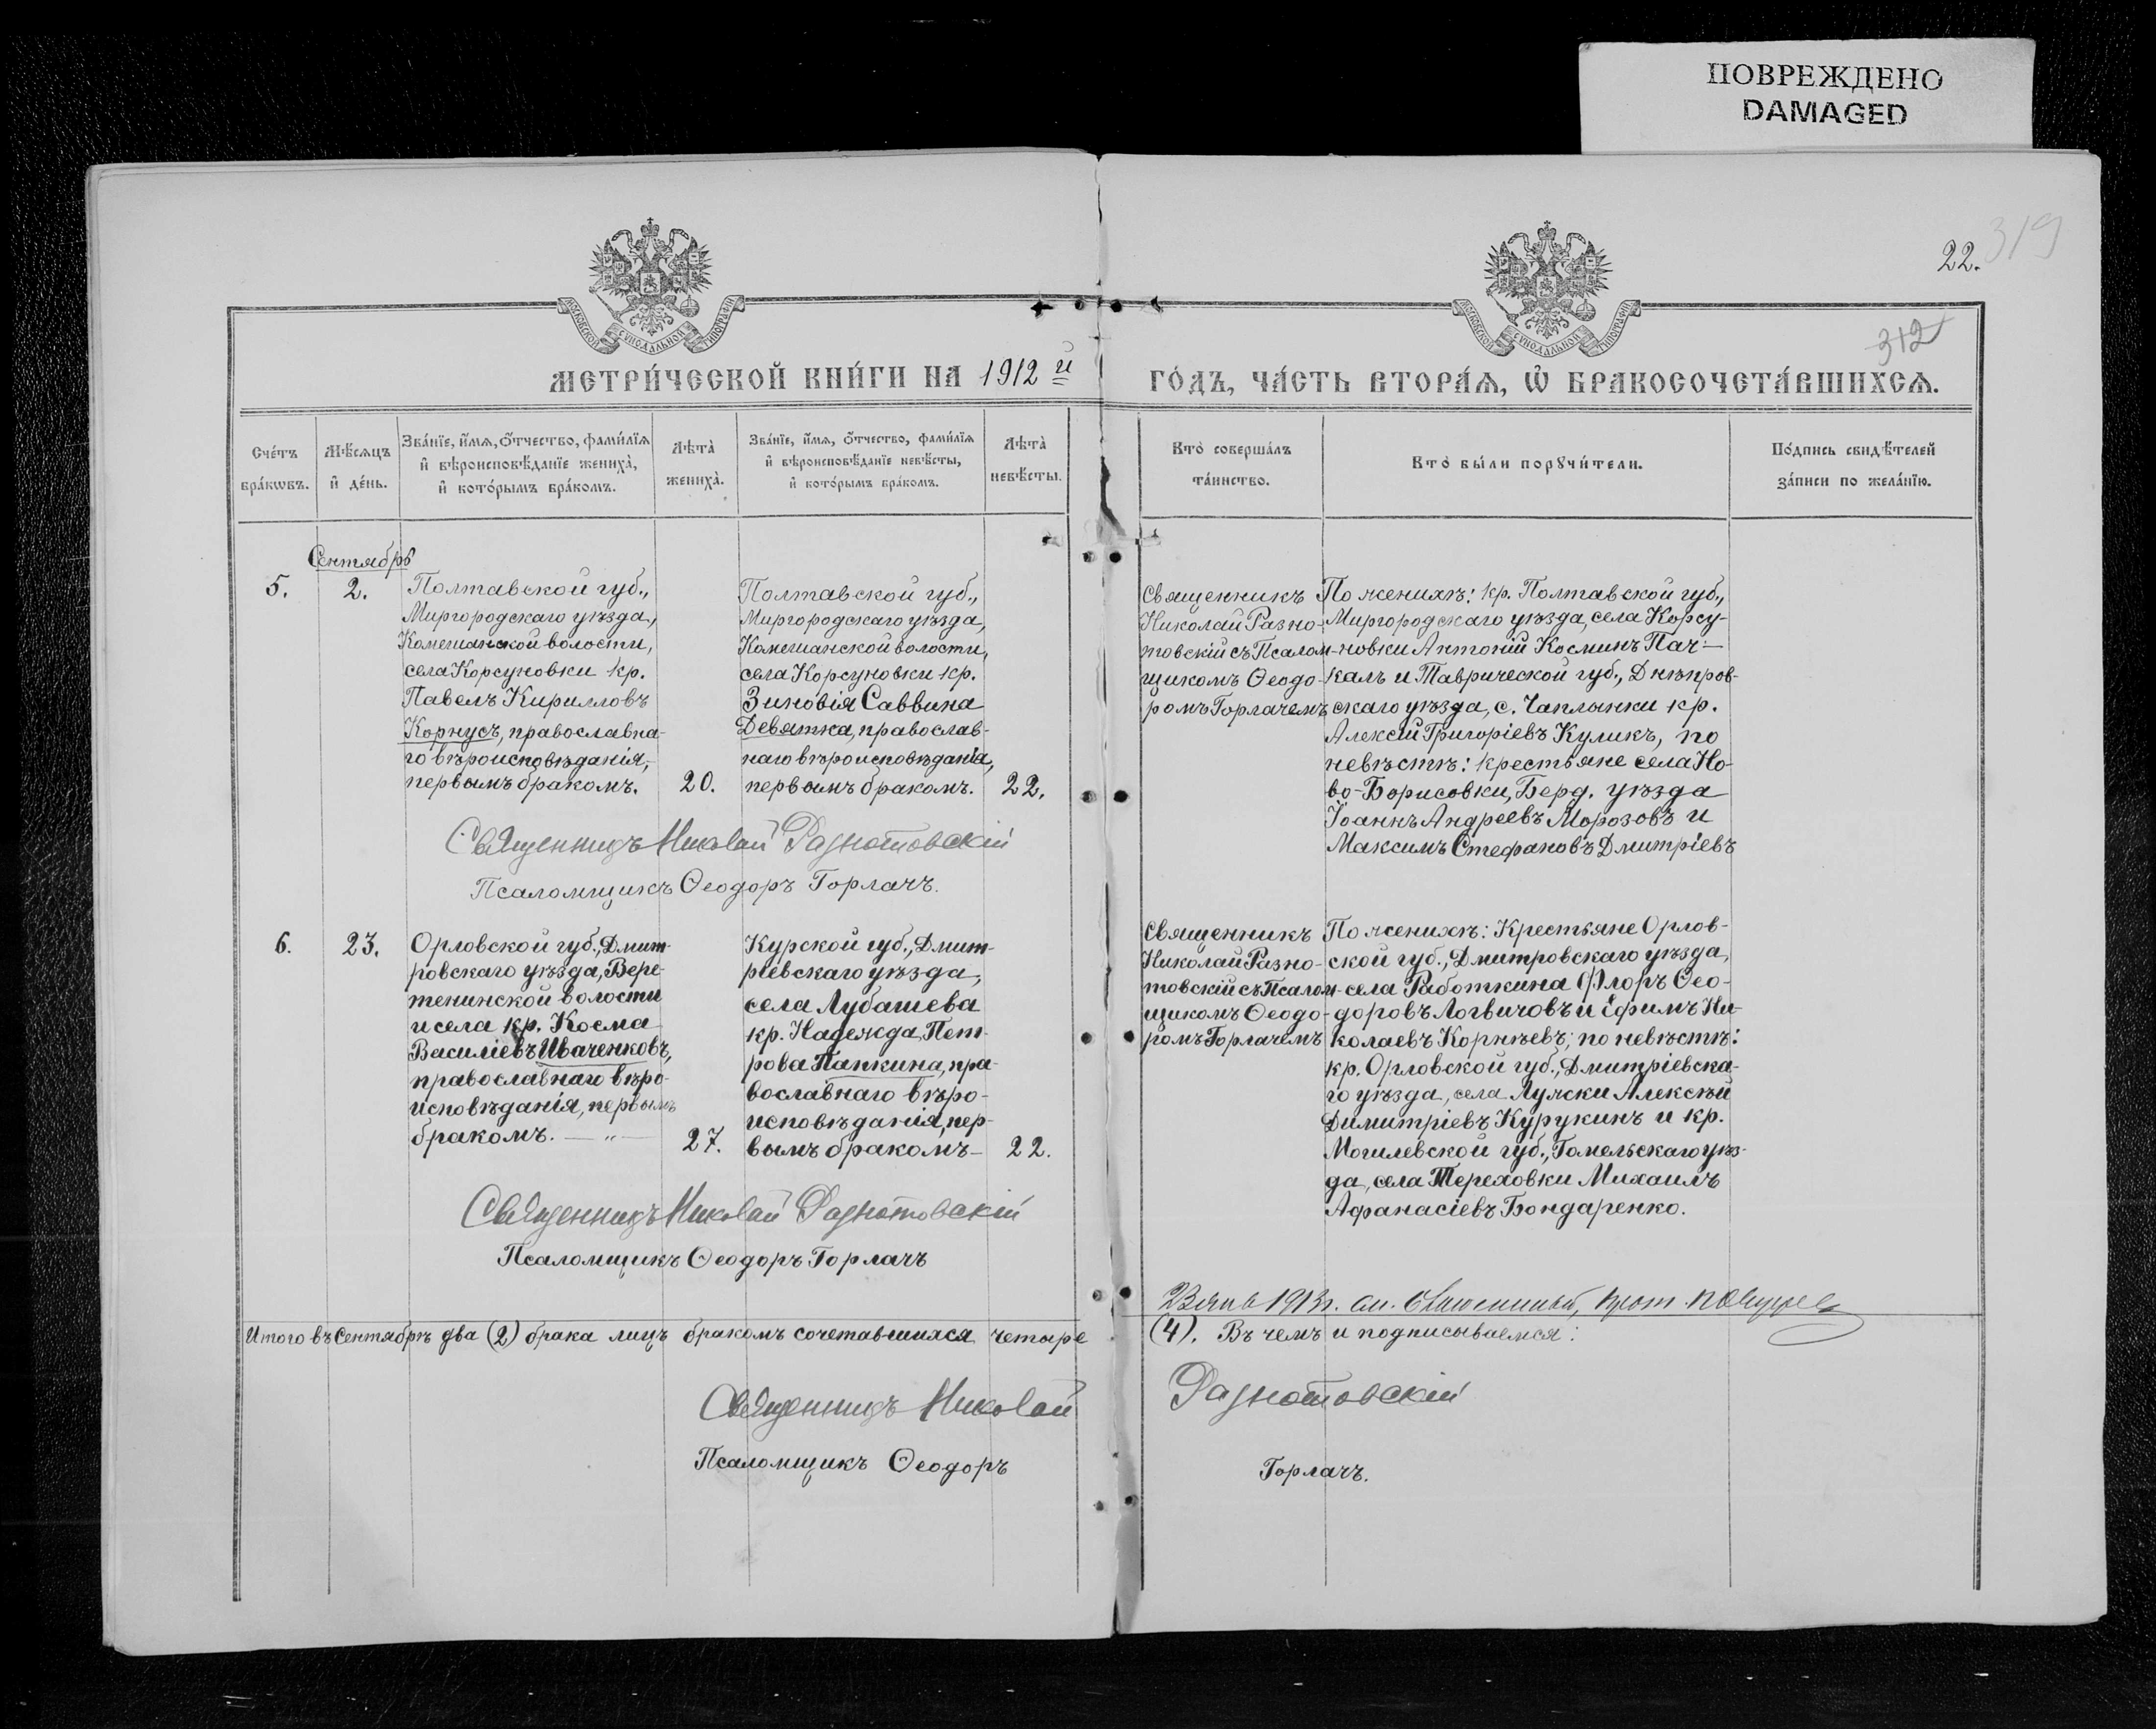 ПОВРЕЖДЕНО
DAMAGED
22.
319
312
МОСКОВСКОЙ СѴНОДАЛЬНОЙ ТИПОГРАФІИ
МОСКОВСКОЙ СѴНОДАЛЬНОЙ ТИПОГРАФІИ
МЕТРИ́ЧЕСКОЙ КНИ́ГИ НА 1912й
ГО́ДЪ, ЧА́СТЬ ВТОРА́Ѧ, Ѡ҆ БРАКОСОЧЕТА́ВШИХСѦ.
Сче́тъ бра́кѡвъ.
Мѣ́сѧцъ и҆ де́нь.
Зва́нїе, и҆́мѧ, ѻ҆́тчество, фами́лїѧ
и҆ вѣроисповѣ́данїе жениха̀,
и҆ кото́рымъ бра́комъ.
Лѣта̀ жениха̀.
Зва́нїе, и҆́мѧ, ѻ҆́тчество, фами́лїѧ
и҆ вѣроисповѣ́данїе невѣ́сты,
и҆ кото́рымъ бра́комъ.
Лѣта̀ невѣ́сты.
Кто̀ соверша́лъ
та́инство.
Кто̀ бы́ли порꙋчи́тели.
По́дпись свидѣ́телей
за́писи по жела́нїю.
Сентябрь
5.
2.
Полтавской губ.,
Миргородскаго уѣзда,
Комешанской волости,
села Корсуновки кр.
Павелъ Кирилловъ
Корнусъ, православна-
го вѣроисповѣданія,
первымъ бракомъ.
20.
Полтавской губ.,
Миргородскаго уѣзда,
Комешанской волости,
села Корсуновки кр.
Зиновія Саввина
Девятка, православ-
наго вѣроисповѣданія,
первымъ бракомъ.
22.
Священникъ
Николай Разно-
товскій съ Псалом-
щикомъ Ѳеодо-
ромъ Горлачемъ
По женихѣ: кр. Полтавской губ.,
Миргородскаго уѣзда, села Корсу-
новки Антоній Косминъ Пач-
калъ и Таврической губ., Днѣпров-
скаго уѣзда, с. Чаплынки кр.
Алексій Григоріевъ Куликъ, по
невѣстѣ: крестьяне села Но-
во-Борисовки, Берд. уѣзда
Іоаннъ Андреевъ Морозовъ и
Максимъ Стефановъ Дмитріевъ
Священникъ Николай Разнотовскій
Псаломщикъ Ѳеодоръ Горлачъ.
6.
23.
Орловской губ., Дмит-
ровскаго уѣзда, Вере-
тенинской волости
и села кр. Косма
Василіевъ Иваченковъ,
православнаго вѣро-
исповѣданія, первымъ
бракомъ. — " —
27.
Курской губ., Дмит-
ріевскаго уѣзда,
села Лубашева
кр. Надежда Пет-
рова Папкина, пра-
вославнаго вѣро-
исповѣданія, пер-
вымъ бракомъ —
22.
Священникъ
Николай Разно-
товскій съ Псалом-
щикомъ Ѳеодо-
ромъ Горлачемъ
По женихѣ: Крестьяне Орлов-
ской губ., Дмитровскаго уѣзда,
села Работкина Флоръ Ѳео-
доровъ Логвичовъ и Ефимъ Ни-
колаевъ Корнѣевъ; по невѣстѣ:
кр. Орловской губ., Дмитріевска-
го уѣзда, села Лужки Алексѣй
Димитріевъ Курукинъ и кр.
Могилевской губ., Гомельскаго уѣз-
да, села Тереховки Михаилъ
Афанасіевъ Бондаренко.
Священникъ Николай Разнотовскій
Псаломщикъ Ѳеодоръ Горлачъ
1913 г.
Итого въ Сентябрѣ два (2) брака лицъ бракомъ сочетавшихся четыре (4). Въ чемъ и подписываемся:
Священникъ Николай Разнотовскій
Псаломщикъ Ѳеодоръ Горлачъ.